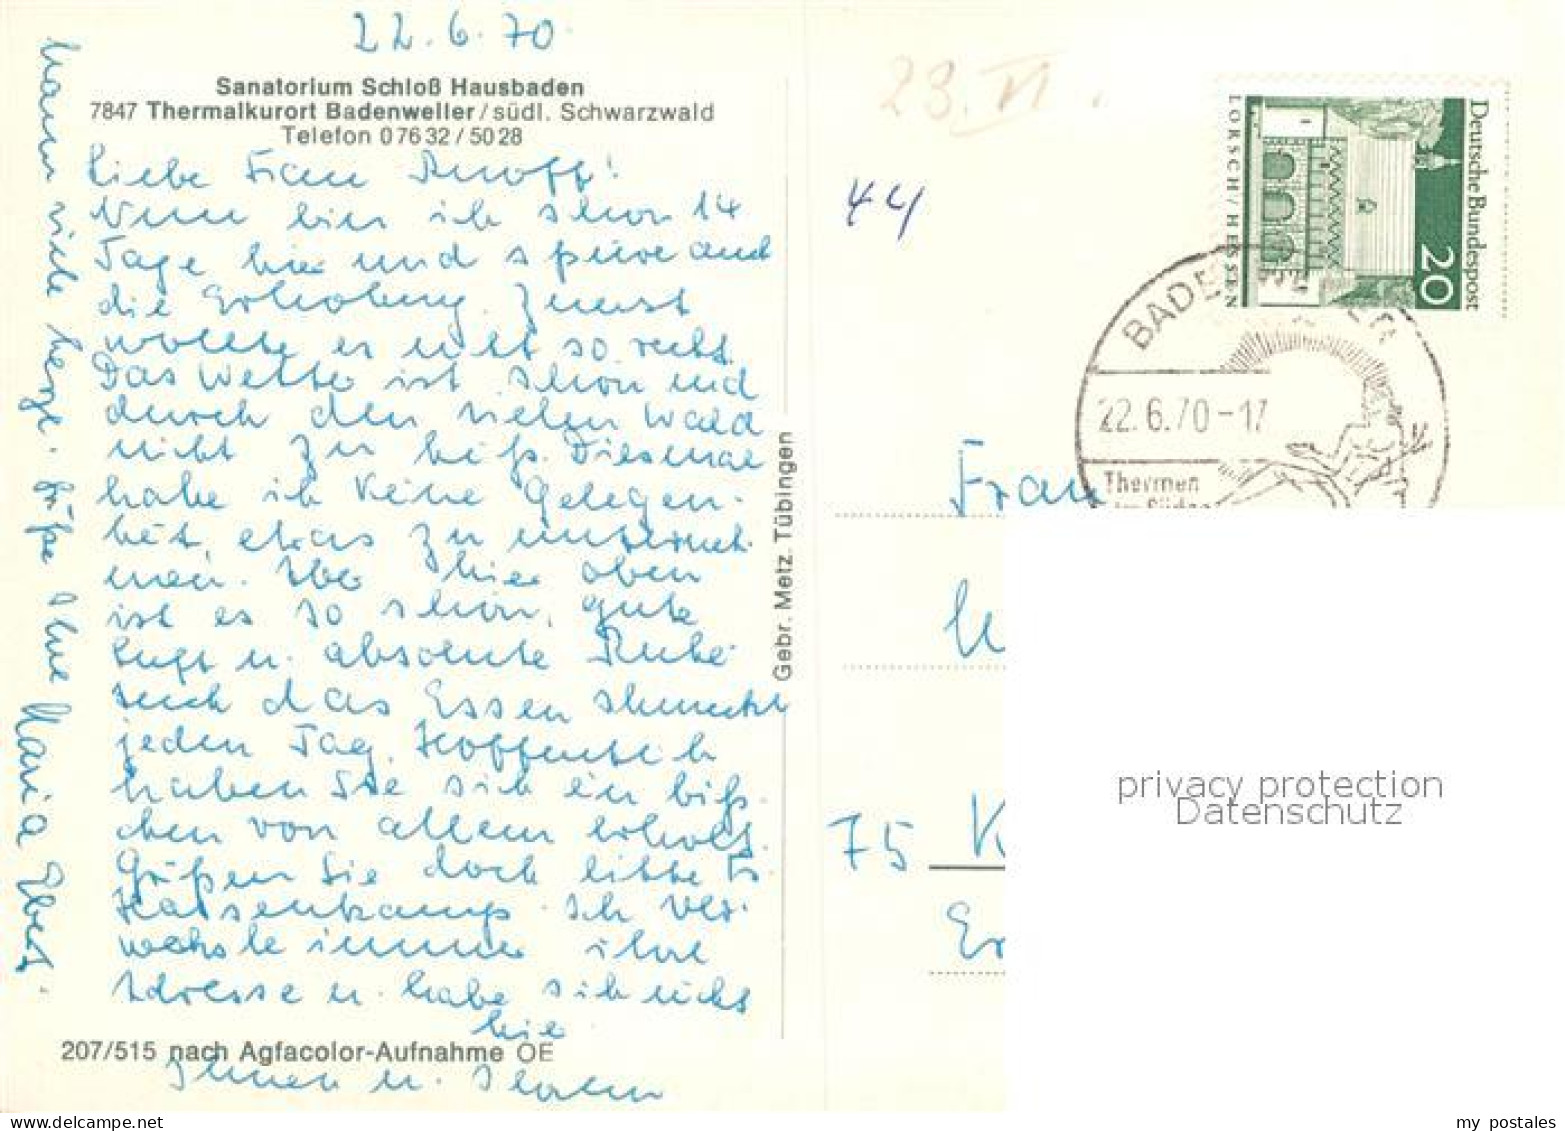 22.6.70
Sanatorium Schloß Hausbaden
7847 Thermalkurort Badenweiler / südl. Schwarzwald
Telefon 07632/5028
Liebe Frau
Nun bin ich schon 14
Tage hier und spüre auch
die Erholung. Zuerst
wollte es nicht so recht.
Das Wetter ist schön und
durch den vielen Wald
nicht zu heiß. Diesmal
habe ich keine Gelegen-
heit, etwas zu unterneh-
men. Aber hier oben
ist es so schön, gute
Luft u. absolute Ruhe
auch das Essen schmeckt
jeden Tag. Hoffentlich
haben Sie sich ein biß-
chen von allem erholt.
Grüßen Sie doch bitte Fr.
Hassenkamp. Ich ver-
wechsle immer ihre
Adresse u. habe sie nicht
hier
Ihnen u. Ihrem
Mann viele herzl. Grüße Ihre Maria Ebert.
207/515 nach Agfacolor-Aufnahme OE
Gebr. Metz, Tübingen
23. VI.
44
Deutsche Bundespost
20
LORSCH / HESSEN
BADENWEILER
22.6.70-17
Thermen
im
Frau
75 K
Er
privacy protection
Datenschutz
my postales